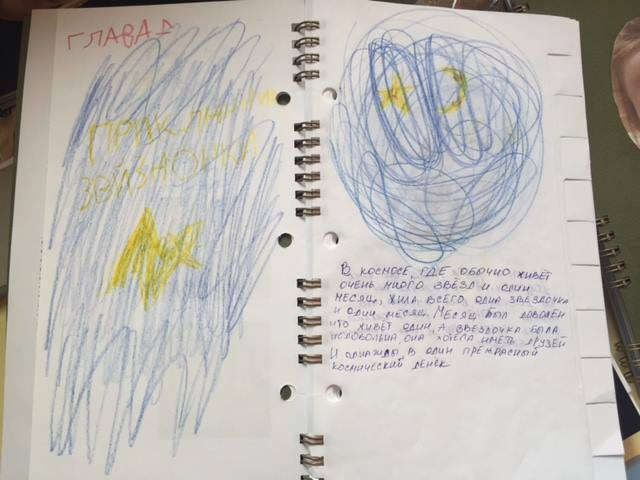 ГЛАВА 1
ПРИКЛЮЧЕНИЯ
ЗВЁЗДОЧКА
В КОСМОСЕ, ГДЕ ОБЫЧНО ЖИВЁТ
ОЧЕНЬ МНОГО ЗВЁЗД И ОДИН
МЕСЯЦ, ЖИЛА ВСЕГО ОДНА ЗВЁЗДОЧКА
И ОДИН МЕСЯЦ. МЕСЯЦ БЫЛ ДОВОЛЕН
ЧТО ЖИВЁТ ОДИН, А ЗВЕЗДОЧКА БЫЛА
НЕДОВОЛЬНА, ОНА ХОТЕЛА ИМЕТЬ ДРУЗЕЙ
И ОДНАЖДЫ, В ОДИН ПРЕКРАСНЫЙ
КОСМИЧЕСКИЙ ДЕНЁК